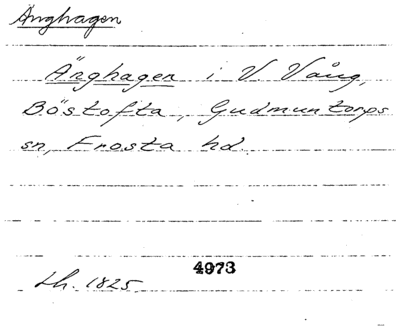 Änghagen
Änghagen i V. Vång,
Böstofta, Gudmuntorps
sn, Frosta hd.
4973
Lh. 1825